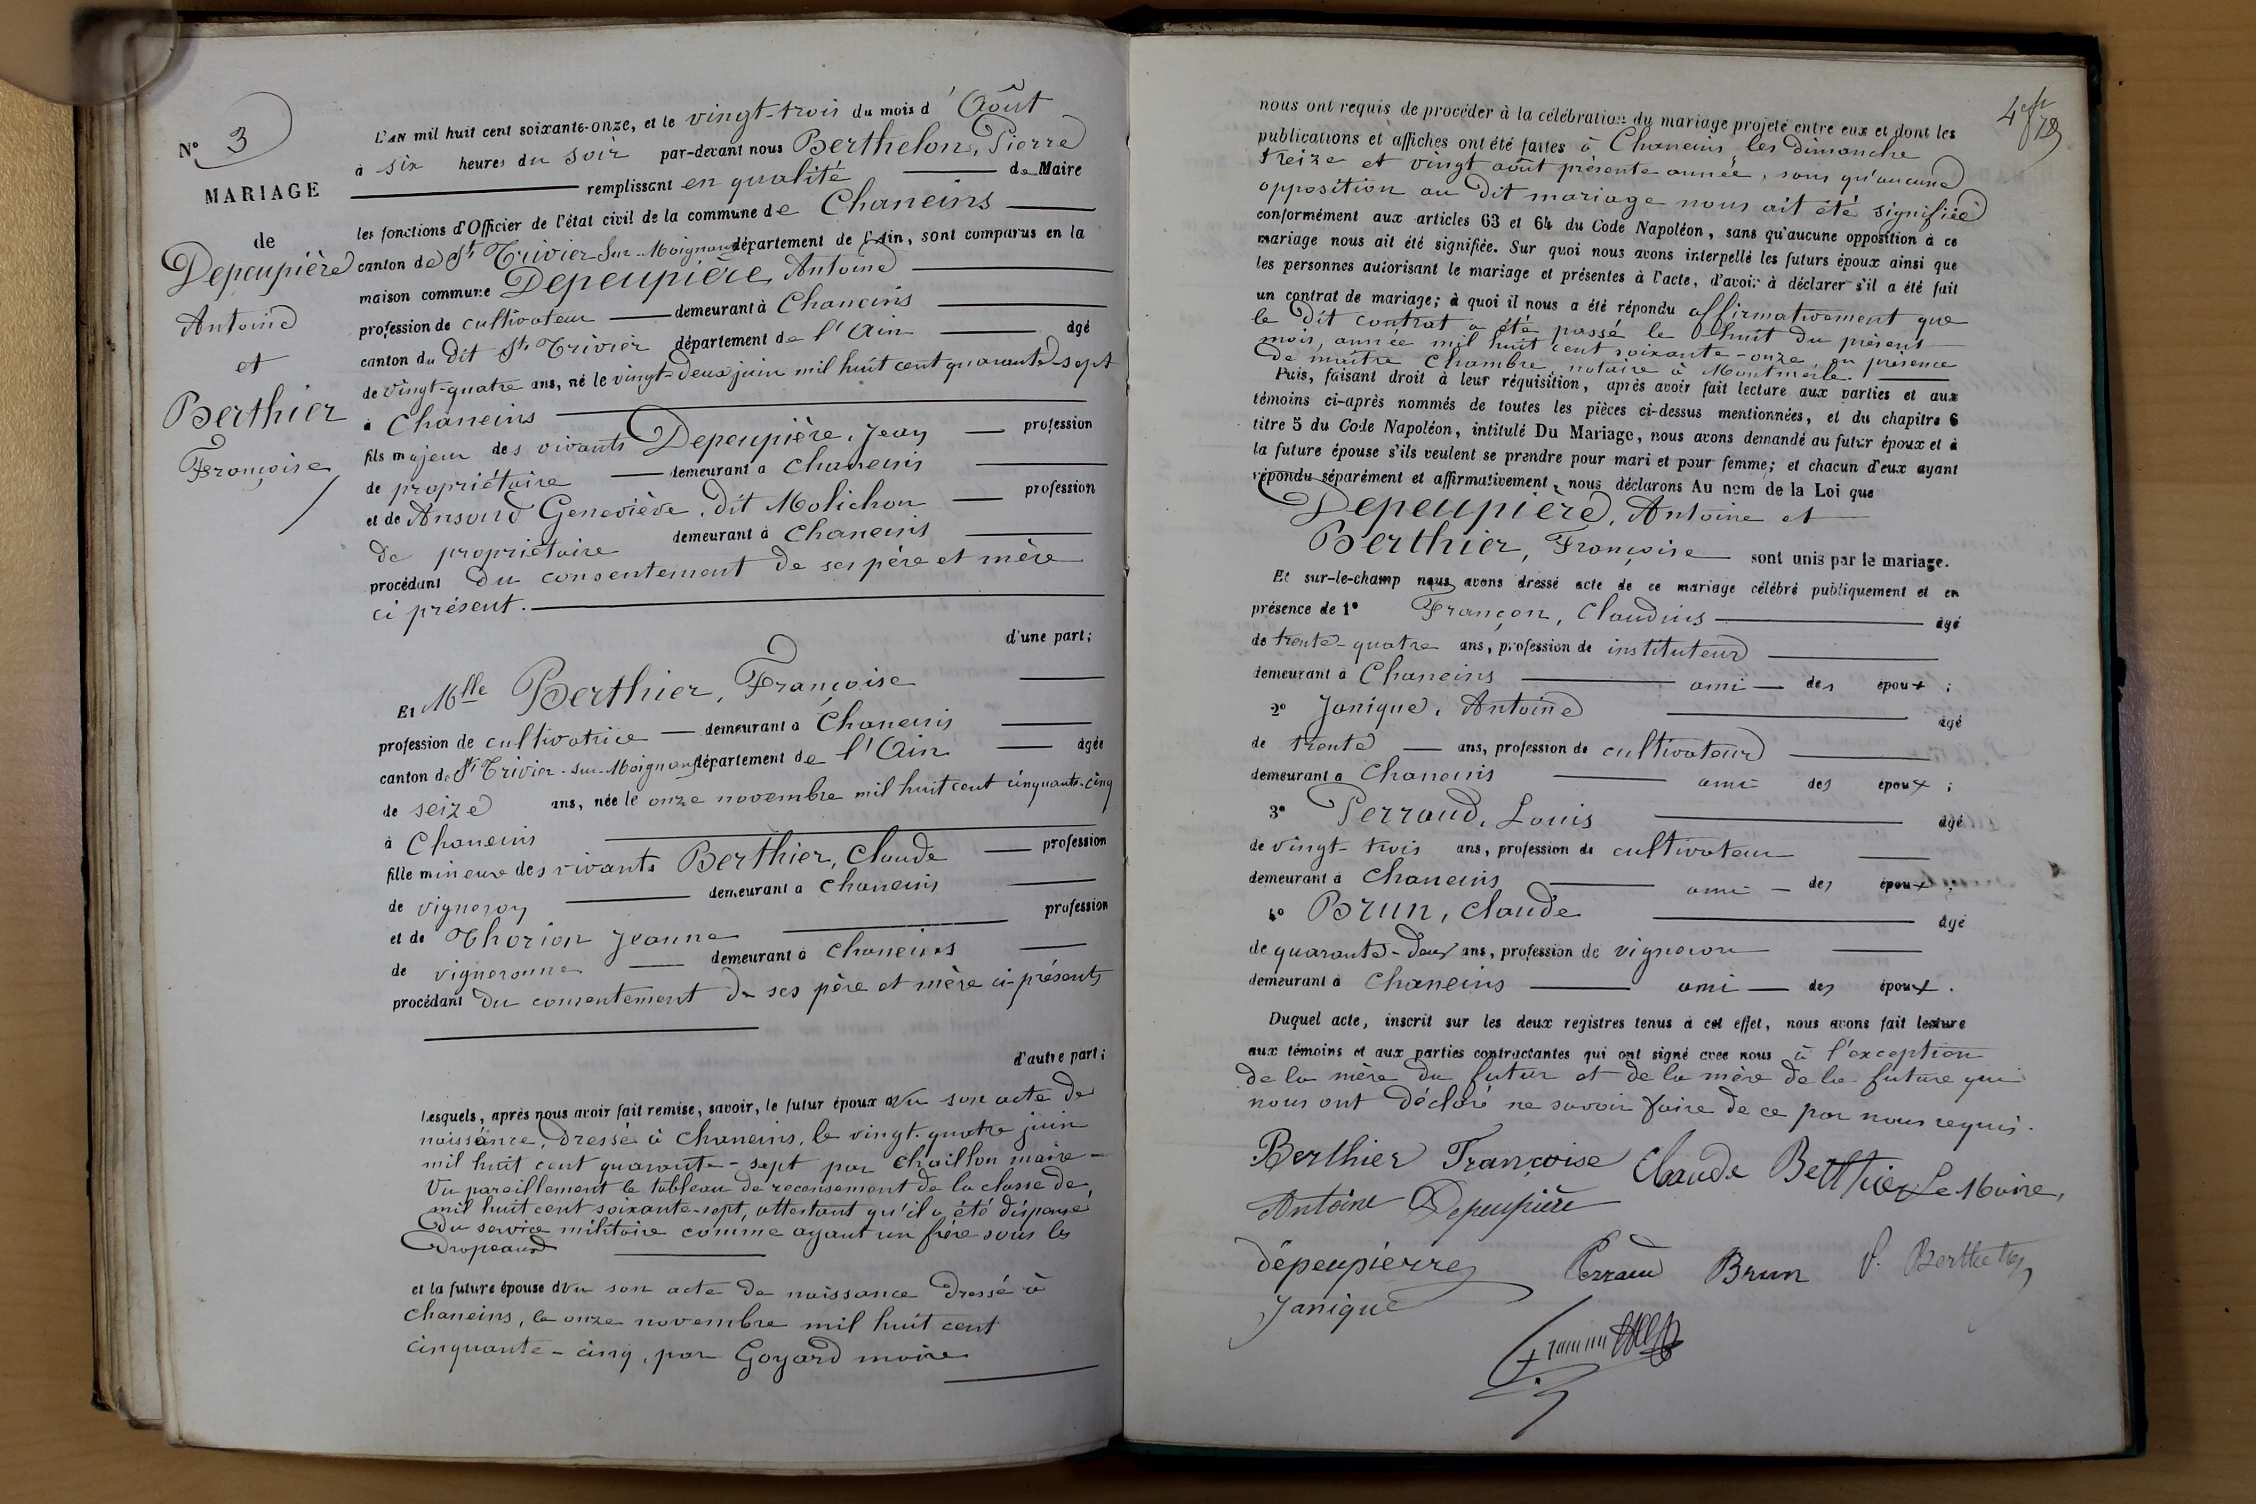 N° 3
MARIAGE
de
Depeupière
Antoine
et
Berthier
Françoise
L'AN mil huit cent soixante-onze, et le vingt-trois du mois d'Août
à six heures du soir par-devant nous Berthelon, Pierre
remplissant en qualité de Maire
les fonctions d'Officier de l'état civil de la commune de Chaneins
canton de St Trivier-sur-Moignans département de l'Ain, sont comparus en la
maison commune Depeupière, Antoine
profession de cultivateur demeurant à Chaneins
canton du dit St Trivier département de l'Ain âgé
de vingt-quatre ans, né le vingt-deux juin mil huit cent quarante-sept
à Chaneins
fils majeur des vivants Depeupière, Jean profession
de propriétaire demeurant à Chaneins
et de Geneviève, dit Molichon profession
de propriétaire demeurant à Chaneins
procédant du consentement de ses père et mère
ci présent.
d'une part;
Et Mlle Berthier, Françoise
profession de cultivatrice demeurant à Chaneins
canton de St Trivier-sur-Moignans département de l'Ain âgée
de seize ans, née le onze novembre mil huit cent cinquante-cinq
à Chaneins
fille mineure des vivants Berthier, Claude profession
de vigneron demeurant à Chaneins
et de Thorion Jeanne profession
de vigneronne demeurant à Chaneins
procédant du consentement de ses père et mère ci-présents
d'autre part;
Lesquels, après nous avoir fait remise, savoir, le futur époux d Vu son acte de
naissance, dressé à Chaneins, le vingt-quatre juin
mil huit cent quarante-sept par Chaillon maire-
Vu pareillement le tableau de recensement de la classe de
mil huit cent soixante-sept, attestant qu'il a été dispensé
du service militaire comme ayant un frère sous les
drapeaux
et la future épouse d Vu son acte de naissance dressé à
Chaneins, le onze novembre mil huit cent
cinquante-cinq, par Goyard maire
nous ont requis de procéder à la célébration du mariage projeté entre eux et dont les
publications et affiches ont été faites à Chaneins les dimanche
treize et vingt août présente année, sans qu'aucune
opposition au dit mariage nous ait été signifiée
conformément aux articles 63 et 64 du Code Napoléon, sans qu'aucune opposition à ce
mariage nous ait été signifiée. Sur quoi nous avons interpellé les futurs époux ainsi que
les personnes autorisant le mariage et présentes à l'acte, d'avoir à déclarer s'il a été fait
un contrat de mariage; à quoi il nous a été répondu affirmativement que
le dit contrat a été passé le huit du présent
mois, année mil huit cent soixante-onze en présence
de maître Chambre, notaire à Montmerle.
Puis, faisant droit à leur réquisition, après avoir fait lecture aux parties et aux
témoins ci-après nommés de toutes les pièces ci-dessus mentionnées, et du chapitre 6
titre 5 du Code Napoléon, intitulé Du Mariage, nous avons demandé au futur époux et à
la future épouse s'ils veulent se prendre pour mari et pour femme; et chacun d'eux ayant
répondu séparément et affirmativement, nous déclarons Au nom de la Loi que
Depeupière, Antoine et
Berthier, Françoise sont unis par le mariage.
Et sur-le-champ nous avons dressé acte de ce mariage célébré publiquement et en
présence de 1° Françon, Claudius âgé
de trente-quatre ans, profession de instituteur
demeurant à Chaneins ami des époux;
2° Janique, Antoine âgé
de trente ans, profession de cultivateur
demeurant à Chaneins ami des époux;
3° Perraud, Louis âgé
de vingt-trois ans, profession de cultivateur
demeurant à Chaneins ami des époux;
4° Brun, Claude âgé
de quarante-deux ans, profession de vigneron
demeurant à Chaneins ami des époux.
Duquel acte, inscrit sur les deux registres tenus à cet effet, nous avons fait lecture
aux témoins et aux parties contractantes qui ont signé avec nous à l'exception
de la mère du futur et de la mère de la future qui
nous ont déclaré ne savoir faire de ce par nous requis.
Berthier Françoise Claude Berthier Le Maire,
Antoine Depeupière
dépeupierre Perraud Brun P. Berthelon
Janique